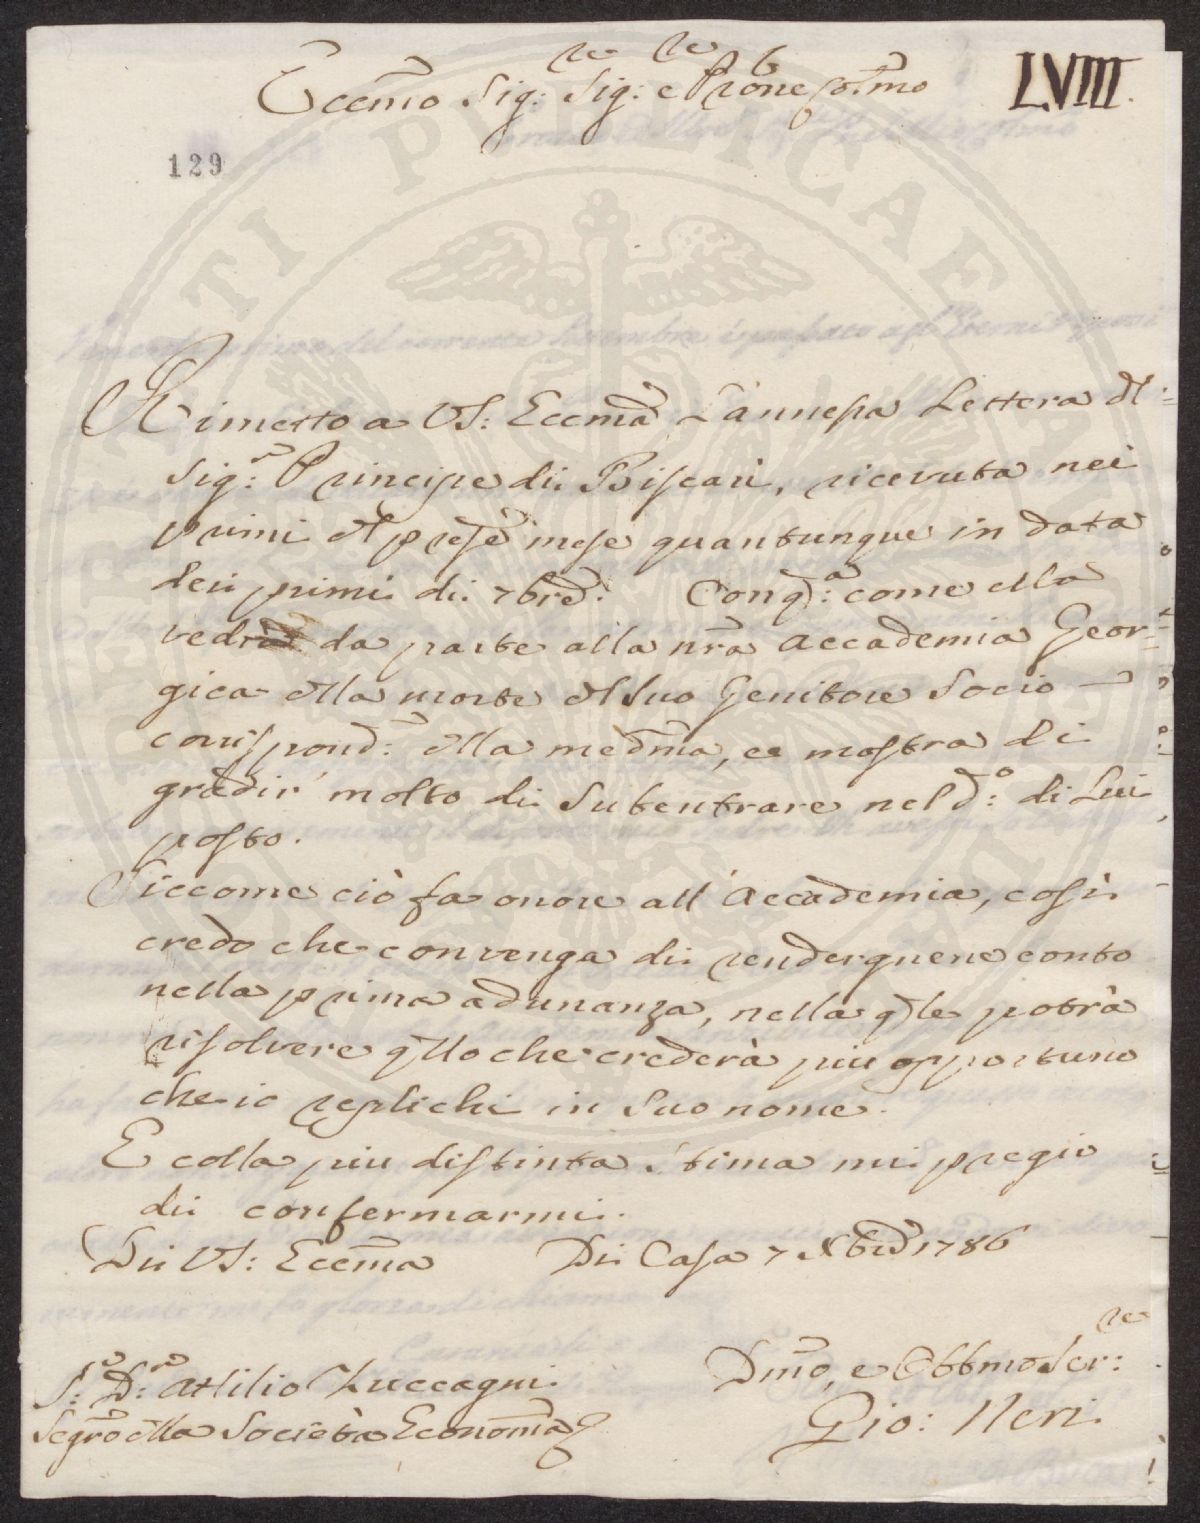 Eccmo Sig:re Sig:re e Prone Colmo
LVIII.
129
Rimetto a VS: Eccma L'annessa Lettera dl
Sig:r Principe di Biscari, ricevuta nei
primi dl preste mese quantunque in data
dei primi di 7bre: Con q:a come ella
vedrà da parte alla nra Accademia Geor=
gica della morte dl suo Genitore Socio
corrispond: della medma, e mostra di
gradir molto di subentrare nel d:o di Lui
posto.
Siccome ciò fa onore all'Accademia, così
credo che convenga di renderguene conto
nella prima adunanza, nella qle potrà
risolvere qllo che crederà piu opportuno
che io replichi in suo nome.
E colla piu distinta stima mi pregio
di confermarmi.
Di VS: Eccma Di Casa 7 Xbre 1786
Dmo, e Obbmo Ser:re
Gio: Neri
S:r D:r Attilio Zuccagni
Segrio della Società Economca